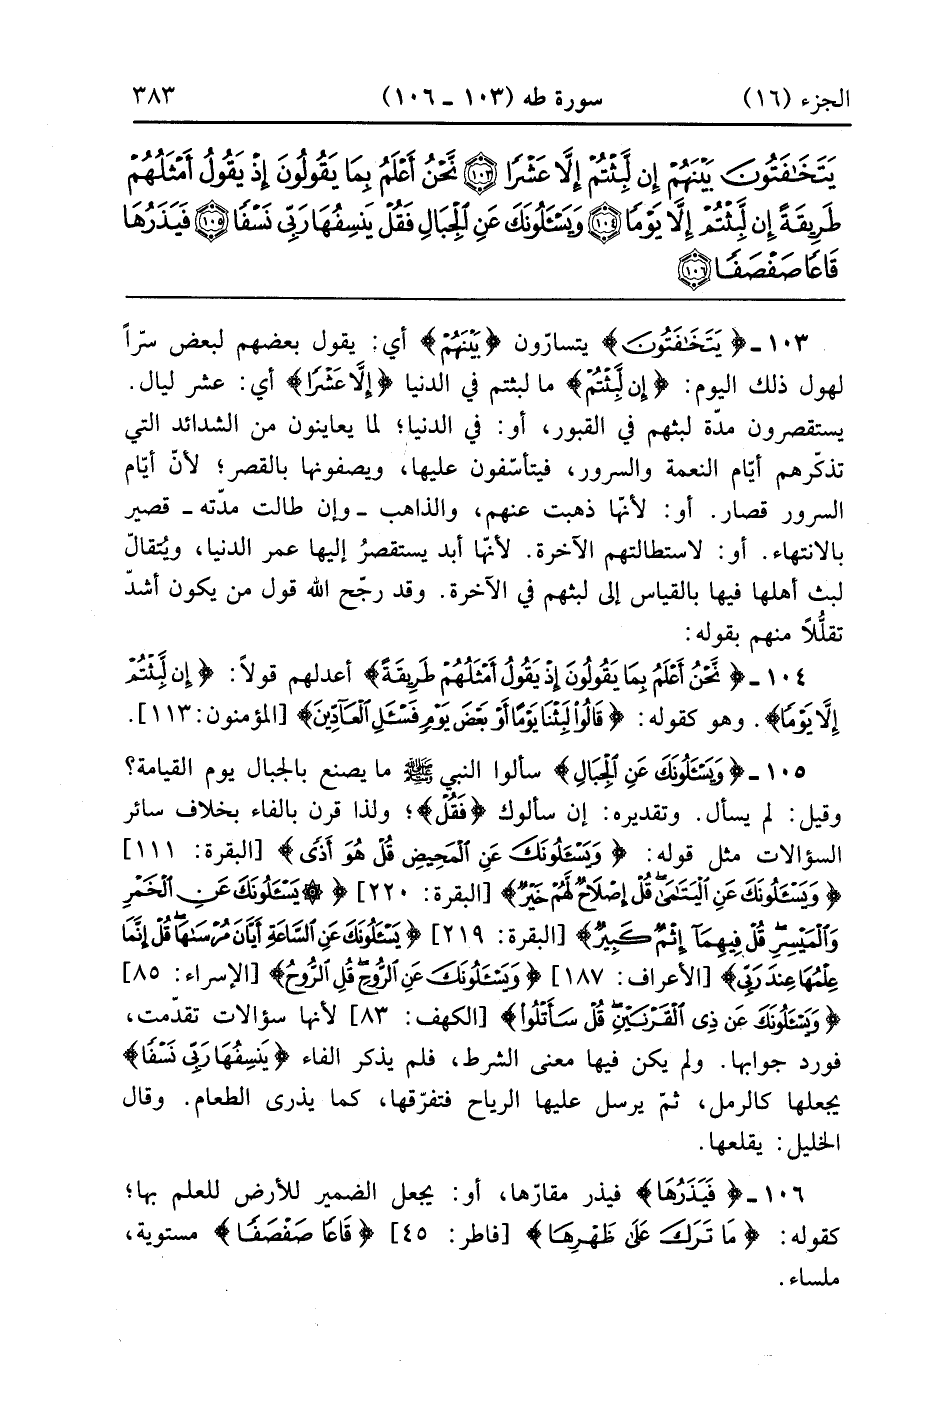 الجزء (١٦) سورة طه (١٠٣ ـ ١٠٦) ٣٨٣
يَتَخَٰفَتُونَ بَيْنَهُمْ إِن لَّبِثْتُمْ إِلَّا عَشْرًا ١٠٣ نَّحْنُ أَعْلَمُ بِمَا يَقُولُونَ إِذْ يَقُولُ أَمْثَلُهُمْ
طَرِيقَةً إِن لَّبِثْتُمْ إِلَّا يَوْمًا ١٠٤ وَيَسْـَٔلُونَكَ عَنِ ٱلْجِبَالِ فَقُلْ يَنسِفُهَا رَبِّى نَسْفًا ١٠٥ فَيَذَرُهَا
قَاعًا صَفْصَفًا ١٠٦
١٠٣ ـ ﴿ يَتَخَٰفَتُونَ ﴾ يتسارّون ﴿ بَيْنَهُمْ ﴾ أي: يقول بعضهم لبعض سرّاً
لهول ذلك اليوم: ﴿ إِن لَّبِثْتُمْ ﴾ ما لبثتم في الدنيا ﴿ إِلَّا عَشْرًا ﴾ أي: عشر ليال.
يستقصرون مدّة لبثهم في القبور، أو: في الدنيا؛ لما يعاينون من الشدائد التي
تذكّرهم أيّام النعمة والسرور، فيتأسّفون عليها، ويصفونها بالقصر؛ لأنّ أيّام
السرور قصار. أو: لأنّها ذهبت عنهم، والذاهب ـ وإن طالت مدّته ـ قصير
بالانتهاء. أو: لاستطالتهم الآخرة. لأنّها أبد يستقصرُ إليها عمر الدنيا، ويُتقالّ
لبث أهلها فيها بالقياس إلى لبثهم في الآخرة. وقد رجّح الله قول من يكون أشدّ
تقلُّلاً منهم بقوله:
١٠٤ ـ ﴿ نَّحْنُ أَعْلَمُ بِمَا يَقُولُونَ إِذْ يَقُولُ أَمْثَلُهُمْ طَرِيقَةً ﴾ أعدلهم قولاً: ﴿ إِن لَّبِثْتُمْ
إِلَّا يَوْمًا ﴾. وهو كقوله: ﴿ قَالُوا۟ لَبِثْنَا يَوْمًا أَوْ بَعْضَ يَوْمٍ فَسْـَٔلِ ٱلْعَآدِّينَ ﴾ [المؤمنون: ١١٣].
١٠٥ ـ ﴿ وَيَسْـَٔلُونَكَ عَنِ ٱلْجِبَالِ ﴾ سألوا النبي ﷺ ما يصنع بالجبال يوم القيامة؟
وقيل: لم يسأل. وتقديره: إن سألوك ﴿ فَقُلْ ﴾؛ ولذا قرن بالفاء بخلاف سائر
السؤالات مثل قوله: ﴿ وَيَسْـَٔلُونَكَ عَنِ ٱلْمَحِيضِ قُلْ هُوَ أَذًى ﴾ [البقرة: ١١١]
﴿ وَيَسْـَٔلُونَكَ عَنِ ٱلْيَتَٰمَىٰ قُلْ إِصْلَاحٌ لَّهُمْ خَيْرٌ ﴾ [البقرة: ٢٢٠] ﴿ ۞ يَسْـَٔلُونَكَ عَنِ ٱلْخَمْرِ
وَٱلْمَيْسِرِ قُلْ فِيهِمَآ إِثْمٌ كَبِيرٌ ﴾ [البقرة: ٢١٩] ﴿ يَسْـَٔلُونَكَ عَنِ ٱلسَّاعَةِ أَيَّانَ مُرْسَىٰهَا قُلْ إِنَّمَا
عِلْمُهَا عِندَ رَبِّى ﴾ [الأعراف: ١٨٧] ﴿ وَيَسْـَٔلُونَكَ عَنِ ٱلرُّوحِ قُلِ ٱلرُّوحُ ﴾ [الإسراء: ٨٥]
﴿ وَيَسْـَٔلُونَكَ عَن ذِى ٱلْقَرْنَيْنِ قُلْ سَأَتْلُوا۟ ﴾ [الكهف: ٨٣] لأنها سؤالات تقدّمت،
فورد جوابها. ولم يكن فيها معنى الشرط، فلم يذكر الفاء ﴿ يَنسِفُهَا رَبِّى نَسْفًا ﴾
يجعلها كالرمل، ثمّ يرسل عليها الرياح فتفرّقها، كما يذرى الطعام. وقال
الخليل: يقلعها.
١٠٦ ـ ﴿ فَيَذَرُهَا ﴾ فيذر مقارّها، أو: يجعل الضمير للأرض للعلم بها؛
كقوله: ﴿ مَا تَرَكَ عَلَىٰ ظَهْرِهَا ﴾ [فاطر: ٤٥] ﴿ قَاعًا صَفْصَفًا ﴾ مستوية،
ملساء.